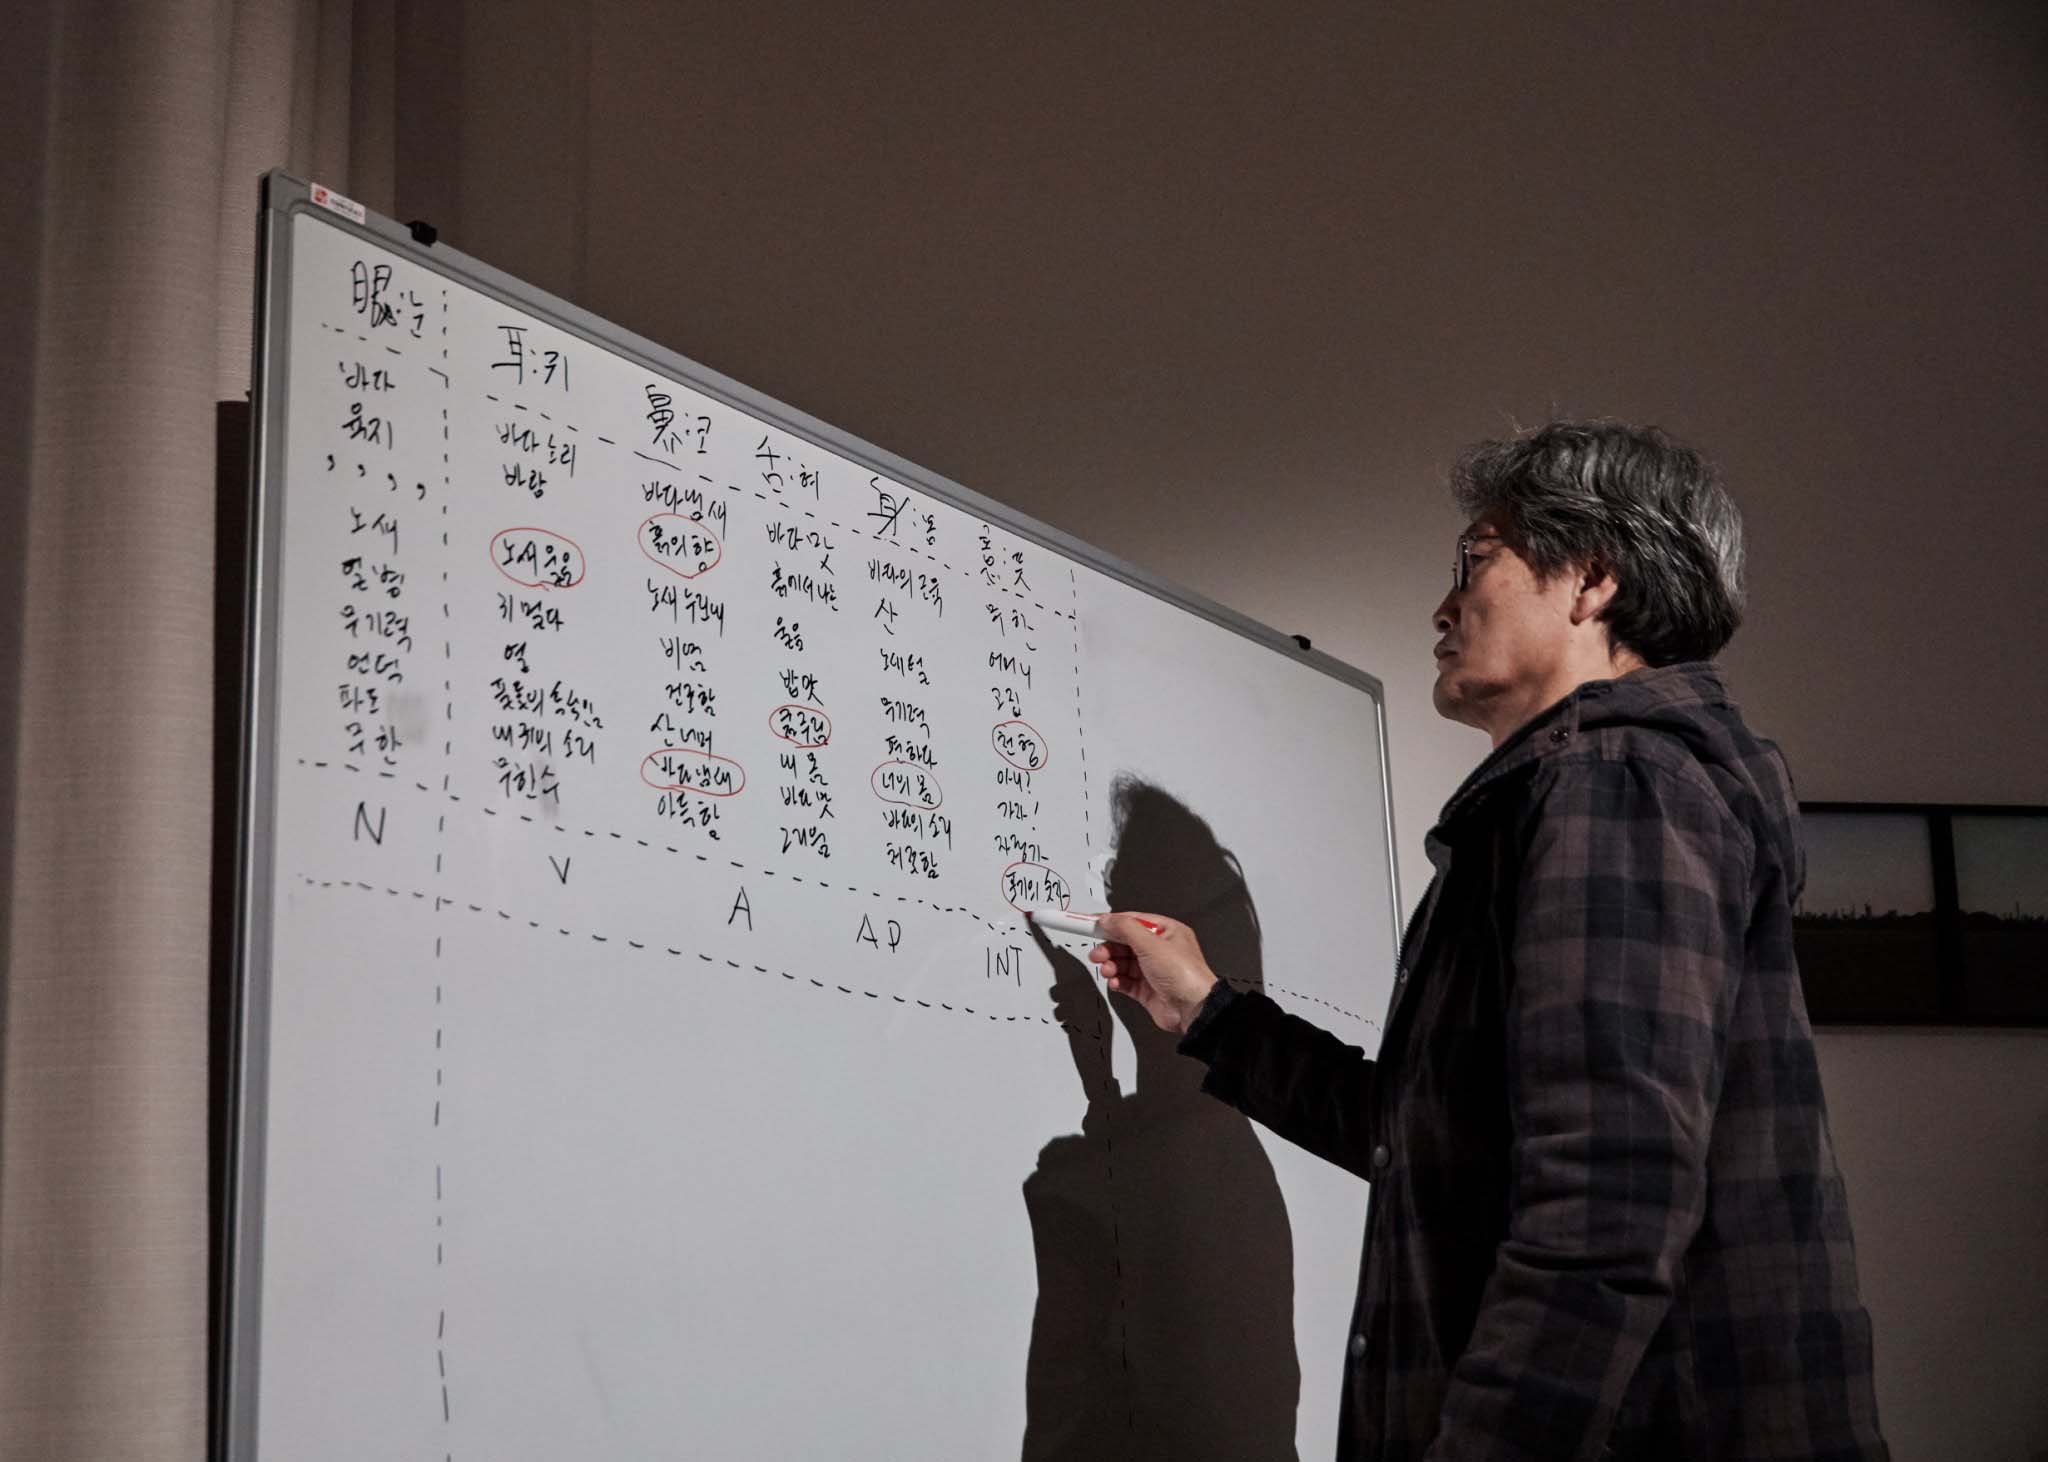 眼:눈
바다
육지
, , , ,
노새
열병
무기력
언덕
파도
무한
N
耳:귀
바다 소리
바람
노새 울음
귀 멀다
열
풀꽃의 속삭임
내 귀의 소리
무한수
V
鼻:코
바다 냄새
흙의 향
노새 누린내
비염
건조함
산 너머
바다 냄새
아득함
A
舌:혀
바다 맛
흙에서 나는
울음
밥맛
굶주림
내 몸
바다 맛
그리움
AP
身:몸
바다의 근육
산
노새 털
무기력
편하다
너의 몸
바다의 소리
처롯함
INT
意:뜻
무한
어머니
고립
천형
아니?
가라!
자장가